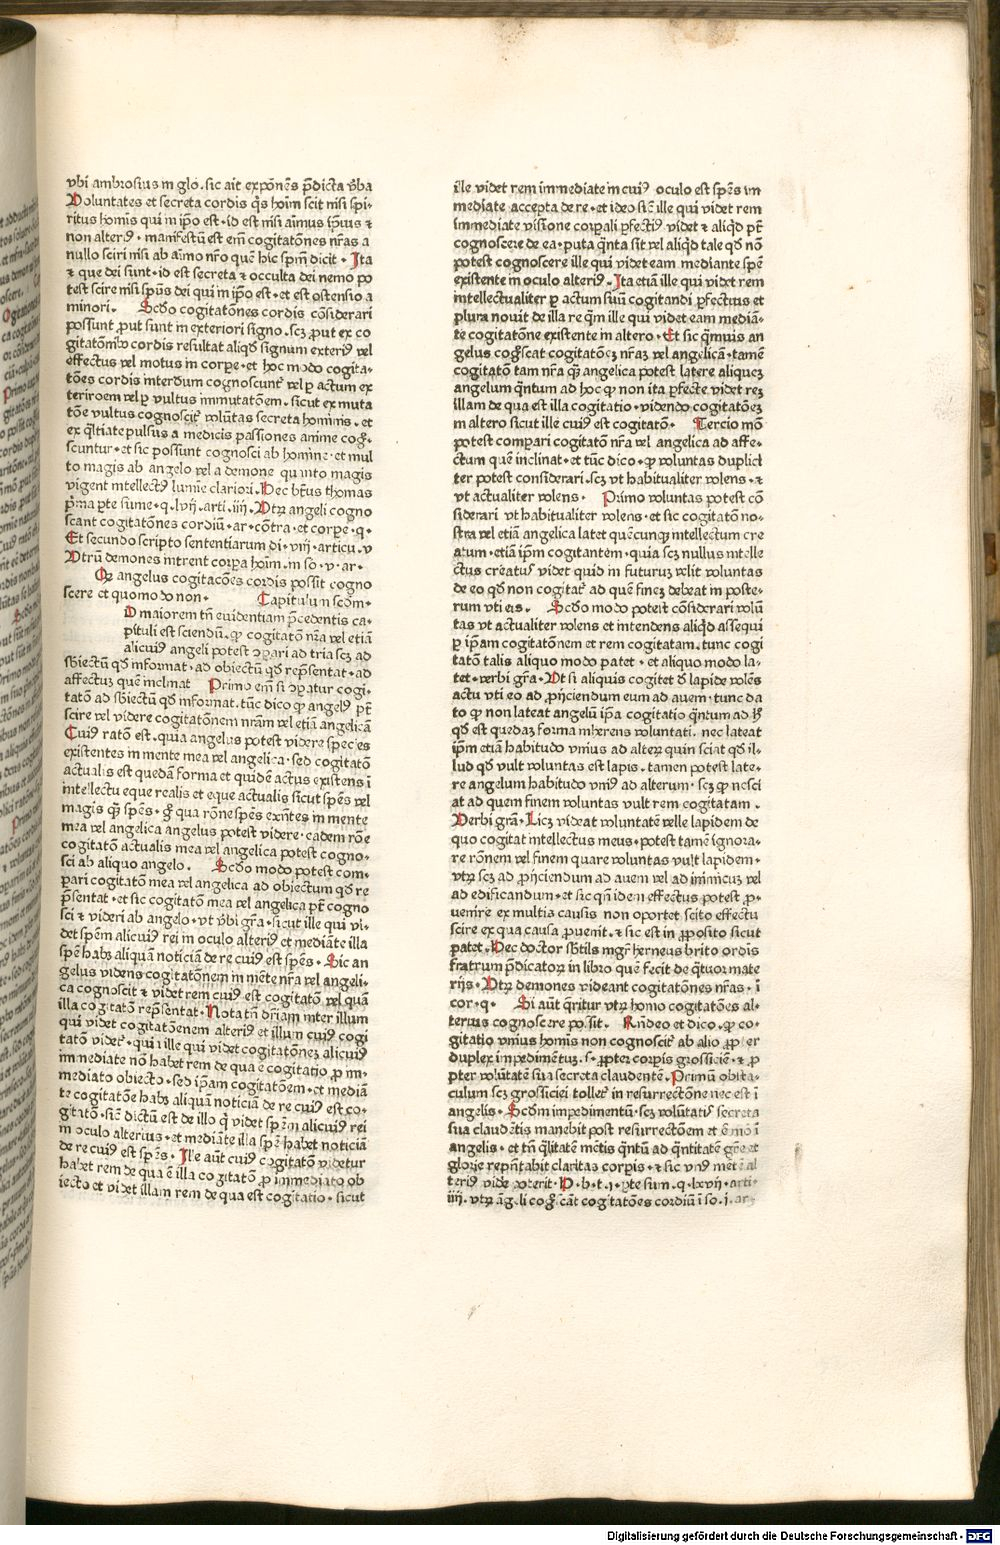 vbi ambrosius in glo. sic ait exponēs p̄dicta v̄ba
Voluntates et secreta cordis q̄s hoīm scit nisi spi-
ritus homīs qui in ip̄o est. id est nisi aīmus ip̄ius ⁊
non alteriꝰ. manifestū est em̄ cogitatōnes nr̄as a
nullo sciri nisi ab aīmo nr̄o quē hic spm̄ dicit. Ita
⁊ que dei sunt. id est secreta ⁊ occulta dei nemo po
test scire nisi spūs dei qui in ip̄o est. et est ostensio a
minori. Scd̄o cogitatōnes cordis cōsiderari
possunt ꝓut sunt in exteriori signo. scꝫ ꝓut ex co
gitatōnibꝰ cordis resultat aliqd̄ signum exteriꝰ vel
effectus vel motus in corpe. et hoc modo cogita-
tōes cordis interdum cognoscunt᷑ vel ꝑ actum ex
teriroem vel ꝑ vultus immutatōem. sicut ex muta
tōe vultus cognoscit᷑ volūtas secreta hominis. et
ex q̄litate pulsus a medicis passiones anime coḡ-
scuntur. et sic possunt cognosci ab homine. et mul
to magis ab angelo vel a demone quanto magis
vigent intellectꝰ lumīe clariori. Hec btūs thomas
p̄ma pte sūme. q. lvij. arti. iiij. Vtꝝ angeli cogno
scant cogitatōnes cordiū. ar. cōtra. et corpe. q.
Et secundo scripto sententiarum di. viij. articu. v
Vtrū demones intrent corpa hoīm. in so. v. ar.
Qꝫ angelus cogitacōes cordis possit cogno
scere et quomodo non. Capitulum scōm.
D maiorem tn̄ euidentiam p̄cedentis ca-
pituli est sciendū. ꝙ cogitatō nr̄a vel etiā
alicuiꝰ angeli potest ꝯpari ad tria scꝫ ad
sbiectū qd̄ informat. ad obiectū qd̄ rep̄sentat. ad
affectuꝫ quē inclinat Primo em̄ si ꝯpatur cogi-
tatō ad sbiectū qd̄ informat. tūc dico ꝙ angelꝰ pt̄
scire vel videre cogitatōnem nram vel etiā angelicā
Cuiꝰ ratō est. quia angelus potest videre species
existentes in mente mea vel angelica. sed cogitatō
actualis est quedā forma et quidē actus existens ī
intellectu eque realis et eque actualis sicut spēs vel
magis qꝫ spēs. g̊ qua rōne spēs exn̄tes in mente
mea vel angelica angelus potest videre. eadem rōe
cogitatō actualis mea vel angelica potest cogno-
sci ab aliquo angelo. Scd̄o modo potest com-
pari cogitatō mea vel angelica ad obiectum qd̄ re
p̄sentat. et sic cogitatō mea vel angelica pt̄ cogno
sci ⁊ videri ab angelo. vt v̄bi gr̄a. sicut ille qui vi-
det spēm alicuiꝰ rei in oculo alteriꝰ et mediāte illa
spē habꝫ aliquā noticiā de re cuiꝰ est spēs. Sic an
gelus videns cogitatōnem in mēte nr̄a vel angeli-
ca cognoscit ⁊ videt rem cuiꝰ est cogitatō vel quā
illa cogitatō rep̄sentat. Nota tn̄ dr̄iam inter illum
qui videt cogitatōenem alteriꝰ et illum cuiꝰ cogi
tatō videt᷑. qui ille qui videt cogitatōneꝫ alicuiꝰ
immediate nō habet rem de qua ē cogitatio ꝓ im-
mediato obiecto. sed ip̄am cogitatōem. et mediā
te cogitatōe habꝫ aliquā noticiā de re cuiꝰ est co-
gitatō. sic̄ dictū est de illo q̄ videt spēm alicuiꝰ rei
in oculo alterius. et mediāte illa spē habet noticiā
de re cuiꝰ est spēs. Ille aūt cuiꝰ cogitatō videtur
habet rem de qua ē illa cogitatō ꝓ immediato ob
iecto et videt illam rem de qua est cogitatio. sicut
ille videt rem immediate in cuiꝰ oculo est spēs im
mediate accepta de re. et ideo sic̄ ille qui videt rem
immediate visione corpali pfectiꝰ videt ⁊ aliqd̄ pt̄
cognoscere de ea. puta q̄nta sit vel aliqd̄ tale qd̄ nō
potest cognoscere ille qui videt eam mediante spē
existente in oculo alteriꝰ. Ita etiā ille qui videt rem
intellectualiter ꝑ actum suū cogitandi pfectius et
plura nouit de illa re qꝫ ille qui videt eam mediā-
te cogitatōne existente in altero. Et sic q̄muis an
gelus cog̊scat cogitatōeꝫ nr̄aꝫ vel angelicā. tamē
cogitatō tam nr̄a qꝫ angelica potest latere aliqueꝫ
angelum q̄ntum ad hoc ꝙ non ita pfecte videt reꝫ
illam de qua est illa cogitatio. videndo cogitatōeꝫ
in altero sicut ille cuiꝰ est cogitatō. Tercio mō
potest compari cogitatō nr̄a vel angelica ad affe-
ctum quē inclinat. et tūc dico. ꝙ voluntas duplicit
ter potest considerari. scꝫ vt habitualiter volens. ⁊
vt actualiter volens. Primo voluntas potest cō
siderari vt habitualiter volens. et sic cogitatō no-
stra vel etiā angelica latet quēcunqꝫ intellectum cre
atum. etiā ip̄m cogitantem. quia scꝫ nullus intelle
ctus creatus videt quid in futuruꝫ velit voluntas
de eo qd̄ non cogitat᷑ ad quē fineꝫ debeat in poste-
rum vti eis. Scd̄o modo potest cōsiderari volū
tas vt actualiter volens et intendens aliqd̄ assequi
ꝑ ip̄am cogitatōnem et rem cogitatam. tunc cogi
tatō talis aliquo modo patet. et aliquo modo la-
tet. verbi gr̄a. Vt si aliquis cogitet d̄ lapide volēs
actu vti eo ad ꝓijciendum eum ad auem. tunc da
to ꝙ non lateat angelū ip̄a cogitatio q̄ntum ad h̊
qd̄ est quedaꝫ forma inherens voluntati. nec lateat
ip̄m etiā habitudo vnius ad alteꝝ quin sciat qd̄ il-
lud qd̄ vult voluntas est lapis. tamen potest late-
re angelum habitudo vniꝰ ad alterum. scꝫ ꝙ nesci
at ad quem finem voluntas vult rem cogitatam.
Verbi gr̄a. Licꝫ videat voluntatē velle lapidem de
quo cogitat intellectus meus. potest tamē ignora-
re rōnem vel finem quare voluntas vult lapidem.
vtꝝ scꝫ ad ꝓijciendum ad auem vel ad inimicuꝫ vel
ad edificandum. et sic qn̄ idem effectus potest ꝓ-
uenire ex multis causis non oportet scito effectu
scire ex qua causa ꝓuenit. ⁊ sic est in ꝓposito sicut
patet. Hec doctor sbtilis mgr̄ herueus brito ordīs
fratrum p̄dicatoꝝ in libro quē fecit de q̄tuor mate
rijs. Vtꝝ demones videant cogitatōnes nr̄as. ī
cor. q. Si aūt q̄ritur vtꝝ homo cogitatōes al-
terius cognoscere possit. Rn̄deo et dico. ꝙ co-
gitatio vnius homīs non cognoscit᷑ ab alio ꝓpter
duplex impedimētuꝫ. s. ꝓpter corpis grossiciē. ⁊ ꝓ
pter volūtatē sua secreta claudentē. Primū obsta-
culum scꝫ grossiciei tollet᷑ in resurrectōne nec est ī
angelis. Scd̄m impedimentū. scꝫ volūtatis secreta
sua claudētis manebit post resurrectōem et ē mō ī
angelis. et tn̄ q̄litatē mētis q̄ntū ad q̄ntitatē gr̄e et
glorie repn̄tabit claritas corpis. ⁊ sic vnꝰ mētē al
teriꝰ vide poterit. H. b. t. i. pte sum. q. lxvij. arti.
iiij. vtꝝ āgeli cog̊scāt cogitatōes cordiū ī so. i. ar.
Digitalisierung gefördert durch die Deutsche Forschungsgemeinschaft - DFG